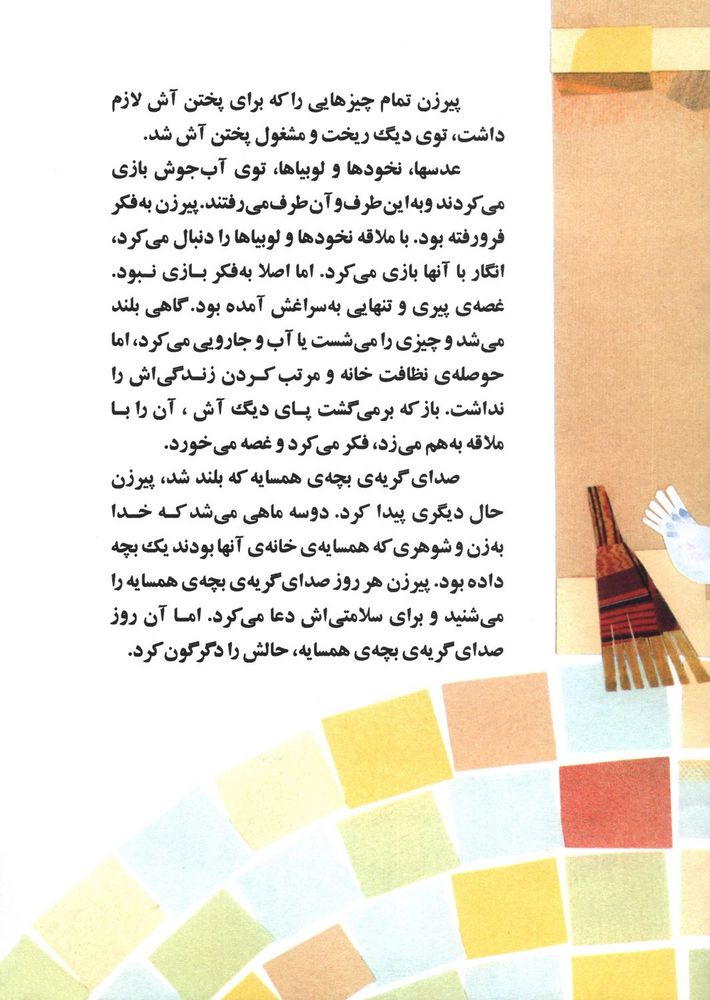 پیرزن تمام چیزهایی را که برای پختن آش لازم
داشت، توی دیگ ریخت و مشغول پختن آش شد.
عدسها، نخودها و لوبیاها، توی آب‌جوش بازی
می‌کردند و به این طرف و آن طرف می‌رفتند. پیرزن به‌فکر
فرورفته بود. با ملاقه نخودها و لوبیاها را دنبال می‌کرد،
انگار با آنها بازی می‌کرد. اما اصلا به‌فکر بازی نبود.
غصه‌ی پیری و تنهایی به‌سراغش آمده بود. گاهی بلند
می‌شد و چیزی را می‌شست یا آب و جارویی می‌کرد، اما
حوصله‌ی نظافت خانه و مرتب کردن زندگی‌اش را
نداشت. باز که برمی‌گشت پای دیگ آش ، آن را با
ملاقه به‌هم می‌زد، فکر می‌کرد و غصه می‌خورد.
صدای گریه‌ی بچه‌ی همسایه که بلند شد، پیرزن
حال دیگری پیدا کرد. دوسه ماهی می‌شد که خدا
به‌زن و شوهری که همسایه‌ی خانه‌ی آنها بودند یک بچه
داده بود. پیرزن هر روز صدای گریه‌ی بچه‌ی همسایه را
می‌شنید و برای سلامتی‌اش دعا می‌کرد. اما آن روز
صدای گریه‌ی بچه‌ی همسایه، حالش را دگرگون کرد.